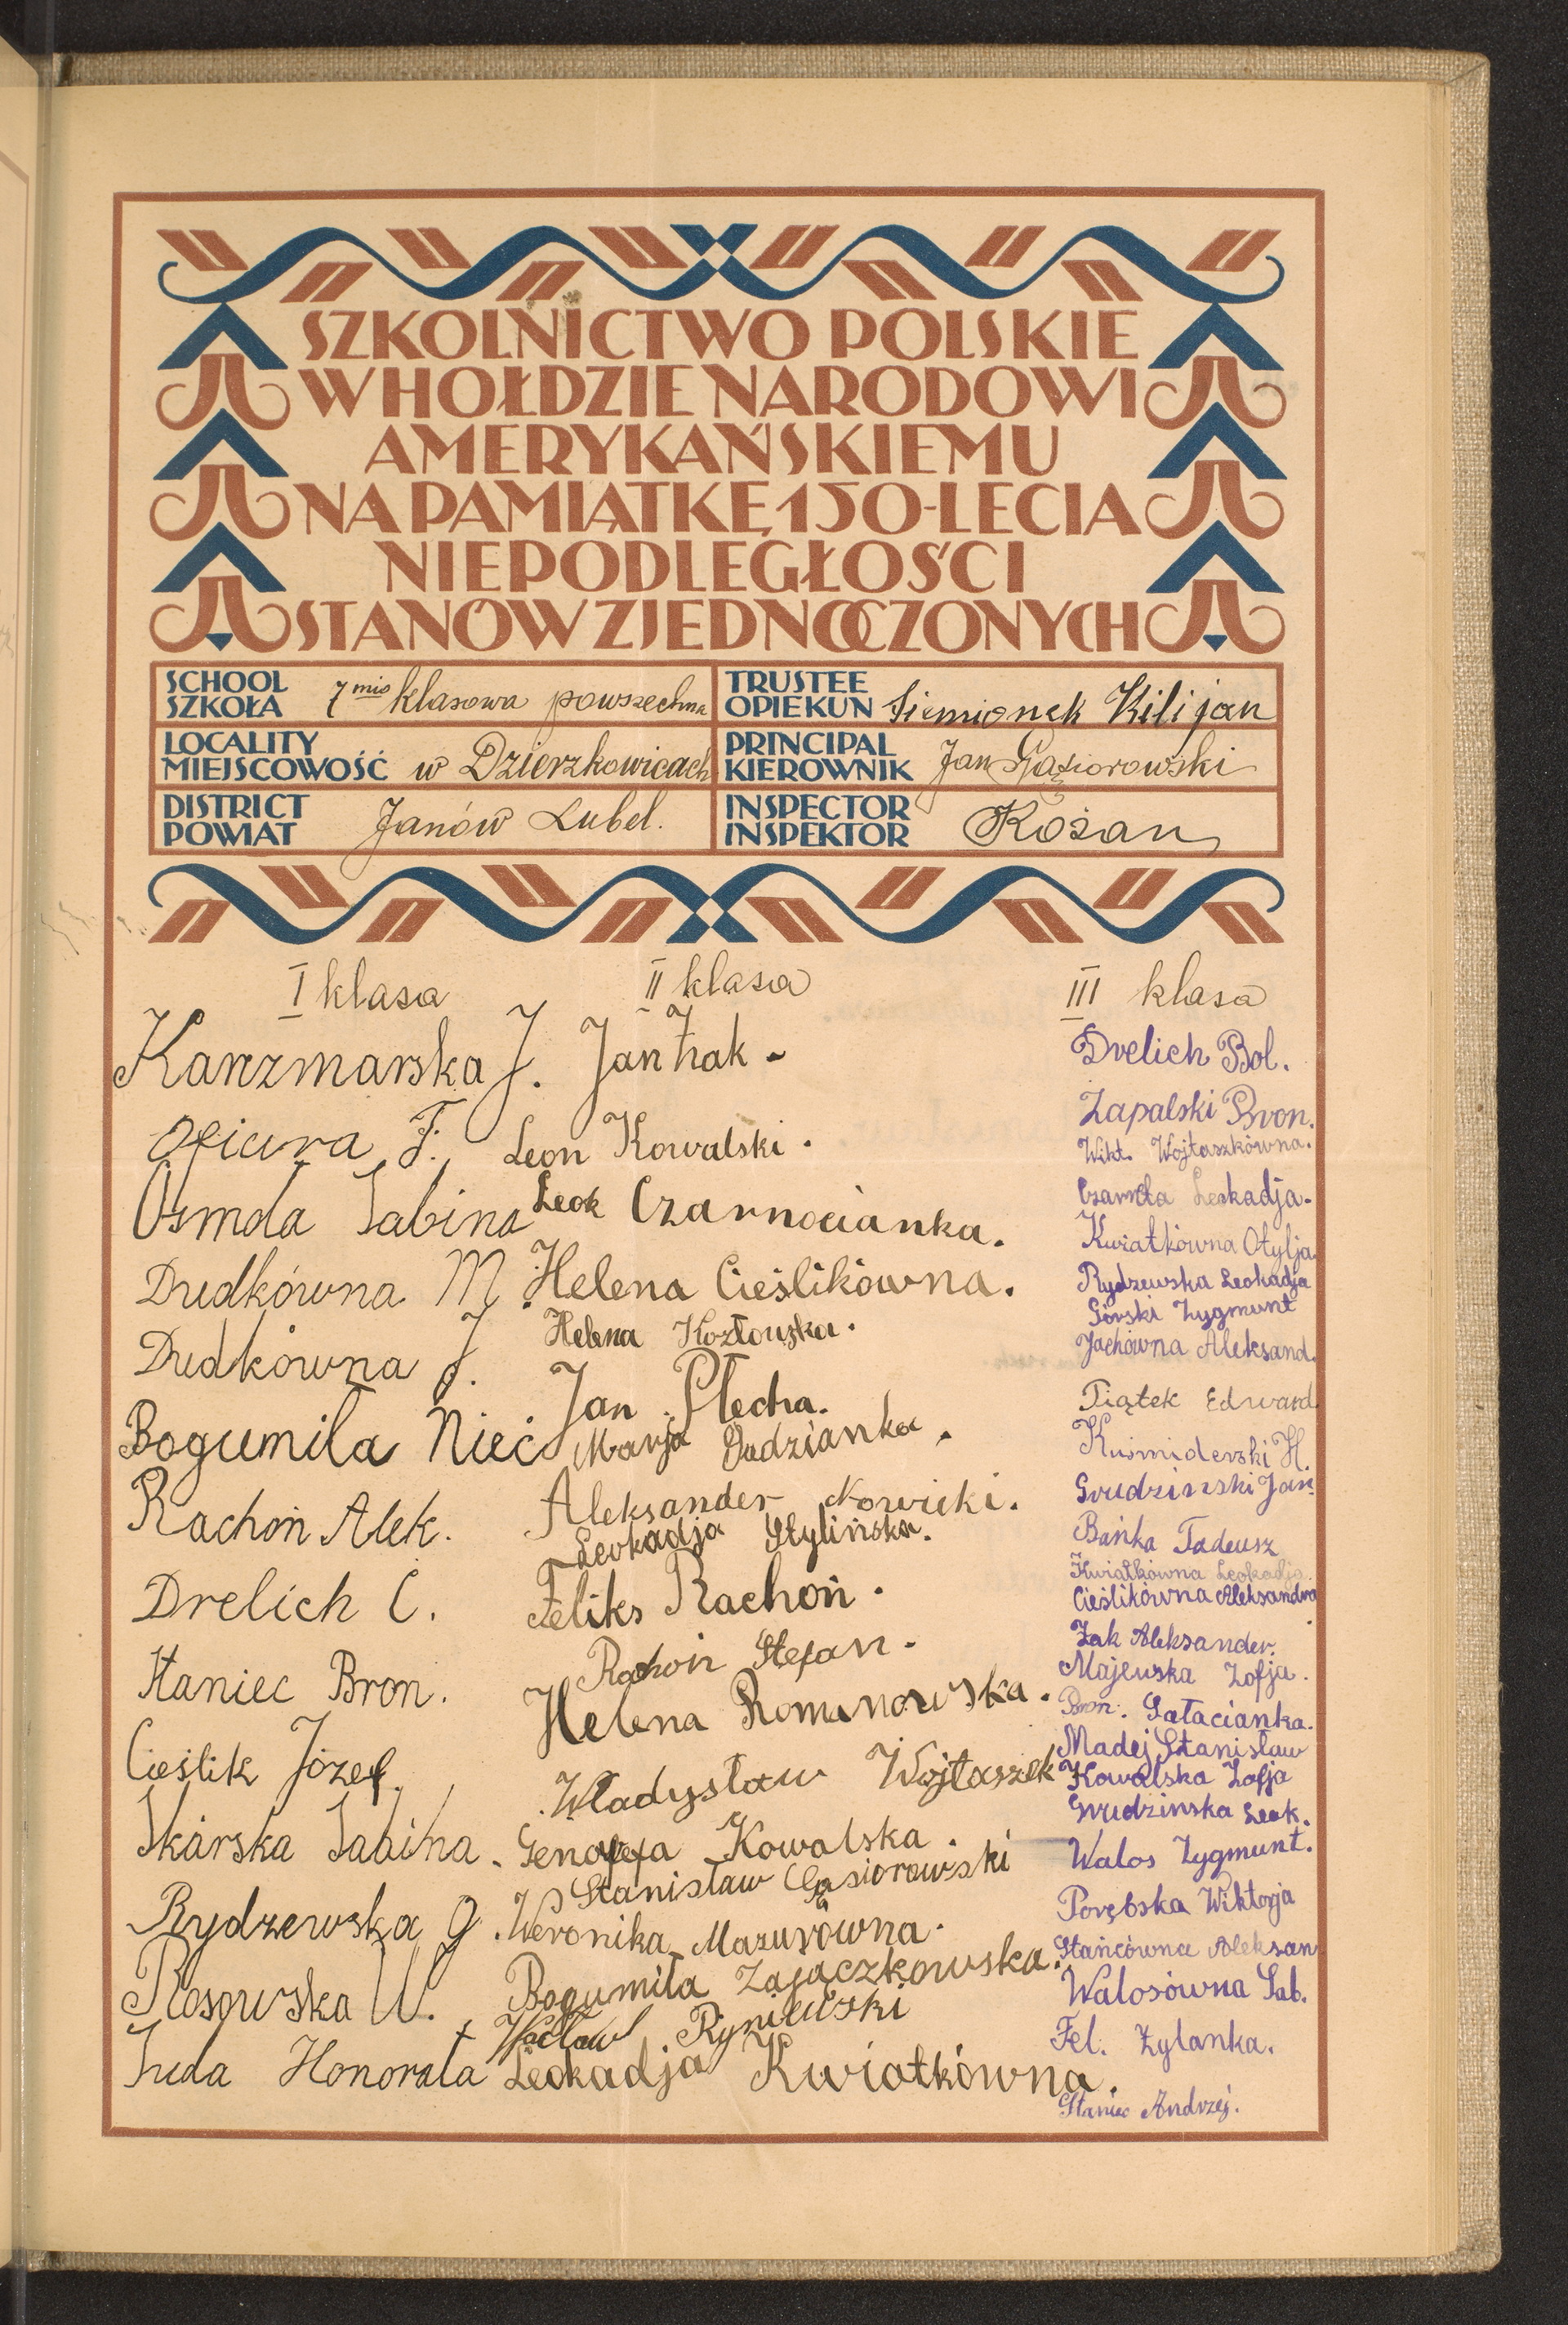 SZKOLNICTWO POLSKIE
W HOŁDZIE NARODOWI
AMERYKAŃSKIEMU
NA PAMIĄTKĘ 150-LECIA
NIEPODLEGŁOŚCI
STANÓW ZJEDNOCZONYCH
SCHOOL
SZKOŁA 7mio klasowa powszechna
LOCALITY
MIEJSCOWOŚĆ w Dzierzkowicach
DISTRICT
POWIAT Janów Lubel.
TRUSTEE
OPIEKUN Siemionek Kilijan
PRINCIPAL
KIEROWNIK Jan Gąsiorowski
INSPECTOR
INSPEKTOR Kożan
I klasa
Karczmarska J.
Ofiara F.
Osmola Sabina
Dudkówna M
Dudkówna J.
Bogumiła Nieć
Rachoń Alek.
Drelich C.
Staniec Bron.
Cieślik Józef
Skarska Sabina.
Rydzewska G.
Rosowska W.
Suda Honorata
II klasa
Jan Żak
Leon Kowalski.
Leok Czarnocianka.
Helena Cieślikówna.
Helena Kozłowska.
Jan Plecha.
Marja Dudzianka.
Aleksander Nowicki.
Leokadja Stylińska.
Feliks Rachoń.
Rachoń Stefan.
Helena Romanowska.
Władysław Wojtaszek
Genowefa Kowalska.
Stanisław Gąsiorowski
Weronika Mazurówna.
Bogumiła Zajączkowska.
Wacław Ryniewski
Leokadja Kwiatkówna.
III klasa
Drelich Bol.
Zapalski Bron.
Wikt. Wojtaszkówna.
Czarnota Leokadja.
Kwiatkówna Otylja.
Rydzewska Leokadja
Górski Zygmunt
Jachówna Aleksand.
Piątek Edward
Kuśmiderski H.
Grudzinski Jan.
Bańka Tadeusz
Kwiatkówna Leokadja.
Cieślikówna Aleksandra
Żak Aleksander.
Majewska Zofja.
Bron. Gałacianka.
Madej Stanisław
Kowalska Zofja
Grudzinska Leok.
Walos Zygmunt.
Porębska Wiktorja
Stańcówna Aleksan
Walosówna Sab.
Fel. Żylanka.
Staniec Andrzej.